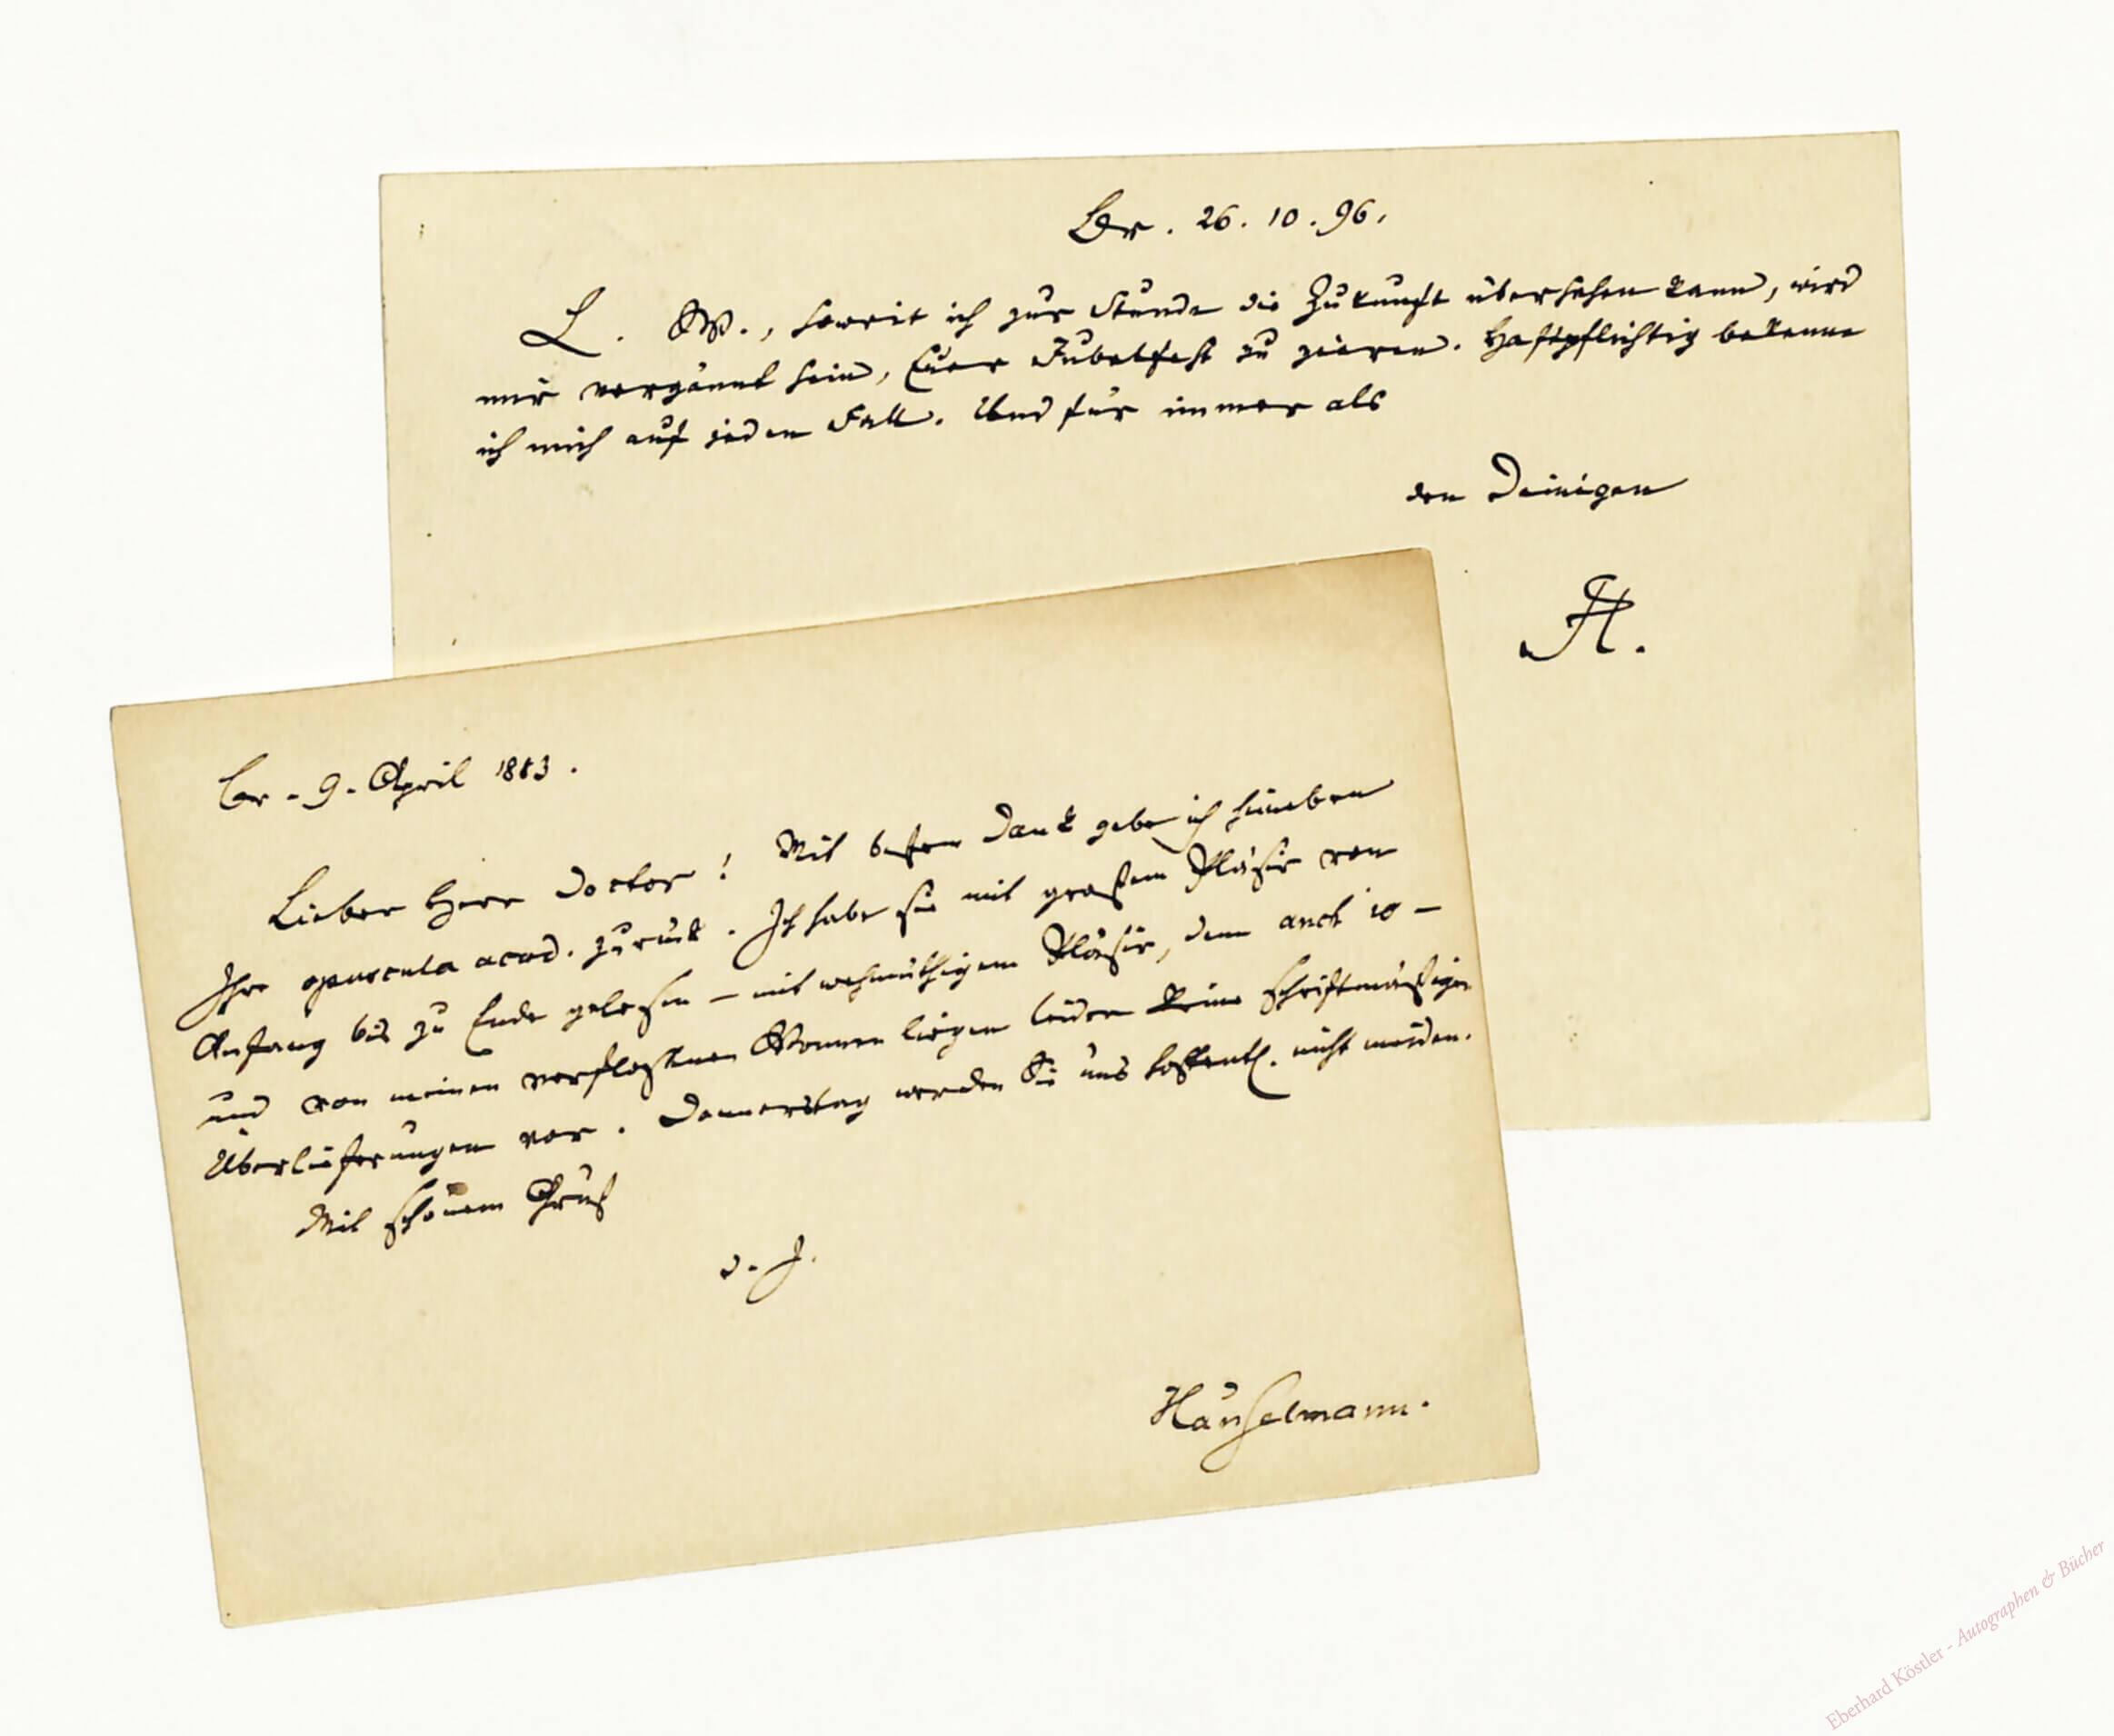 Br. 26. 10. 96.
L. W., soweit ich zur Stunde die Zukunft übersehen kann, wird
mir vergönnt sein, Euer Jubelfest zu zieren. Haftpflichtig bekenne
ich mich auf jeden Fall. Und für immer als
den Deinigen
H.
Br. 9. April 1883.
Lieber Herr Doctor! Mit bestem Dank gebe ich hieneben
Ihre opuscula acad. zurück. Ich habe sie mit großem Pläsir von
Anfang bis zu Ende gelesen — mit wehmüthigem Pläsir, denn anch' io —
und von meinen verfloßenen Wonnen liegen leider keine schriftmäßigen
Überlieferungen vor. Donnerstag werden Sie uns hoffentl. nicht meiden.
Mit schönem Gruß
d. I.
Hänselmann.
Eberhard Köstler - Autographen & Bücher